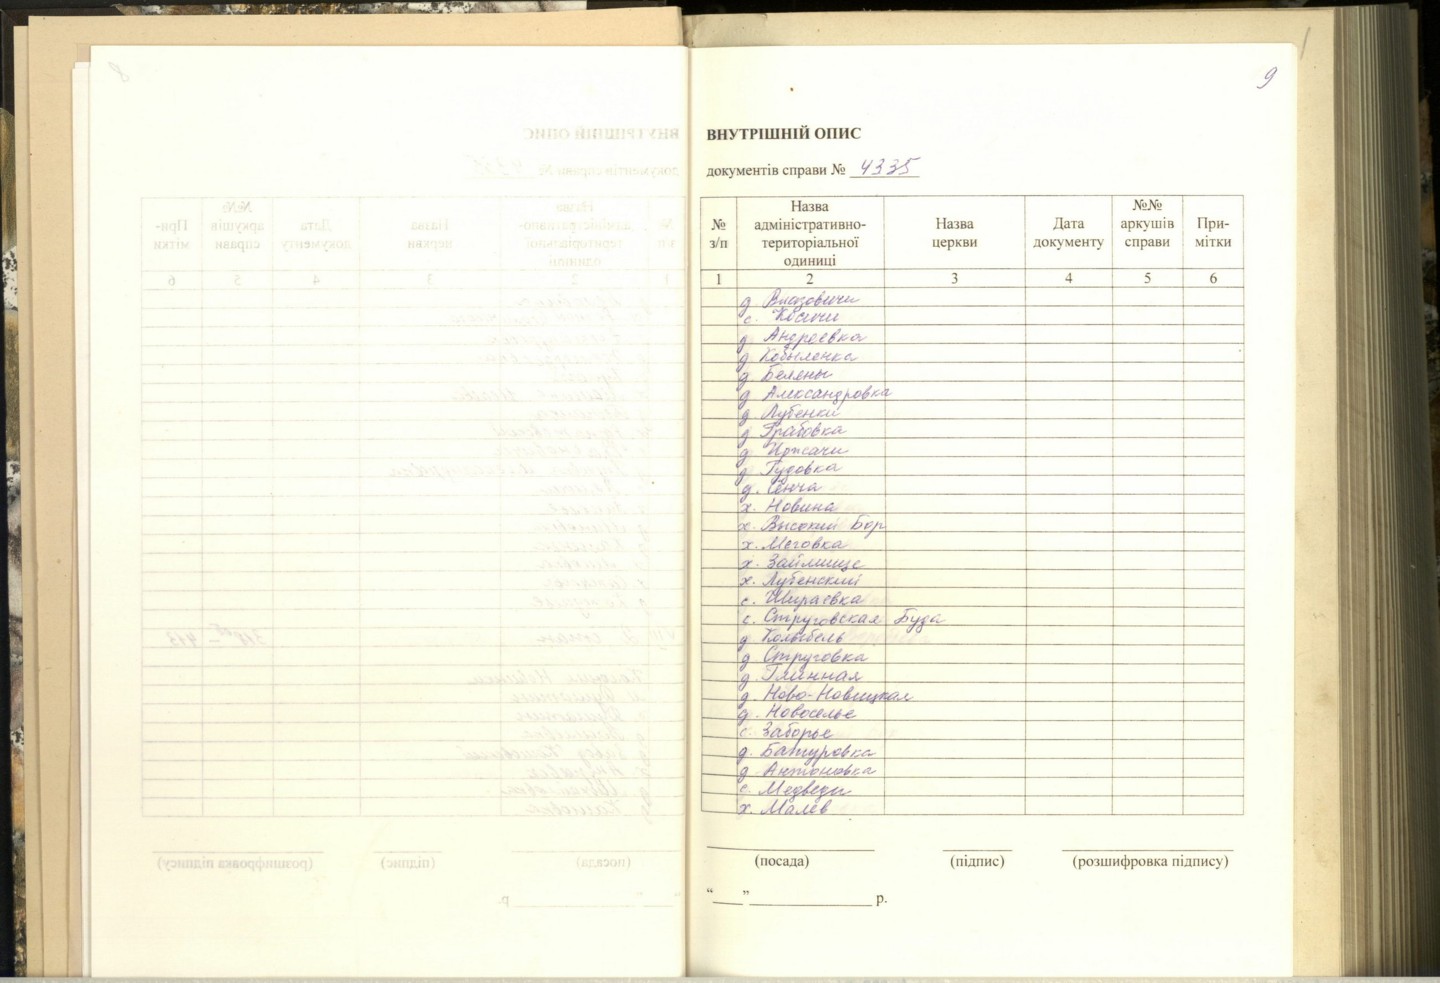 9
ВНУТРІШНІЙ ОПИС
документів справи № 4335
№ з/п
Назва адміністративно-територіальної одиниці
Назва церкви
Дата документу
№№ аркушів справи
При-мітки
1 2 3 4 5 6
д. Вызовичи
с. Косичи
д. Андреевка
д. Кобыленка
д. Беляны
д. Александровка
д. Лубенки
д. Грабовка
д. Иржачи
д. Гудовка
д. Сенча
х. Новина
х. Высокий Бор
х. Меговка
х. Займище
х. Лубенский
с. Шираевка
с. Струговская Буда
д. Колыбель
д. Струговка
д. Глинная
д. Ново-Новицкая
д. Новоселье
с. Заборье
д. Батуровка
д. Антоновка
с. Медведи
х. Малев
(посада) (підпис) (розшифровка підпису)
“ ” р.